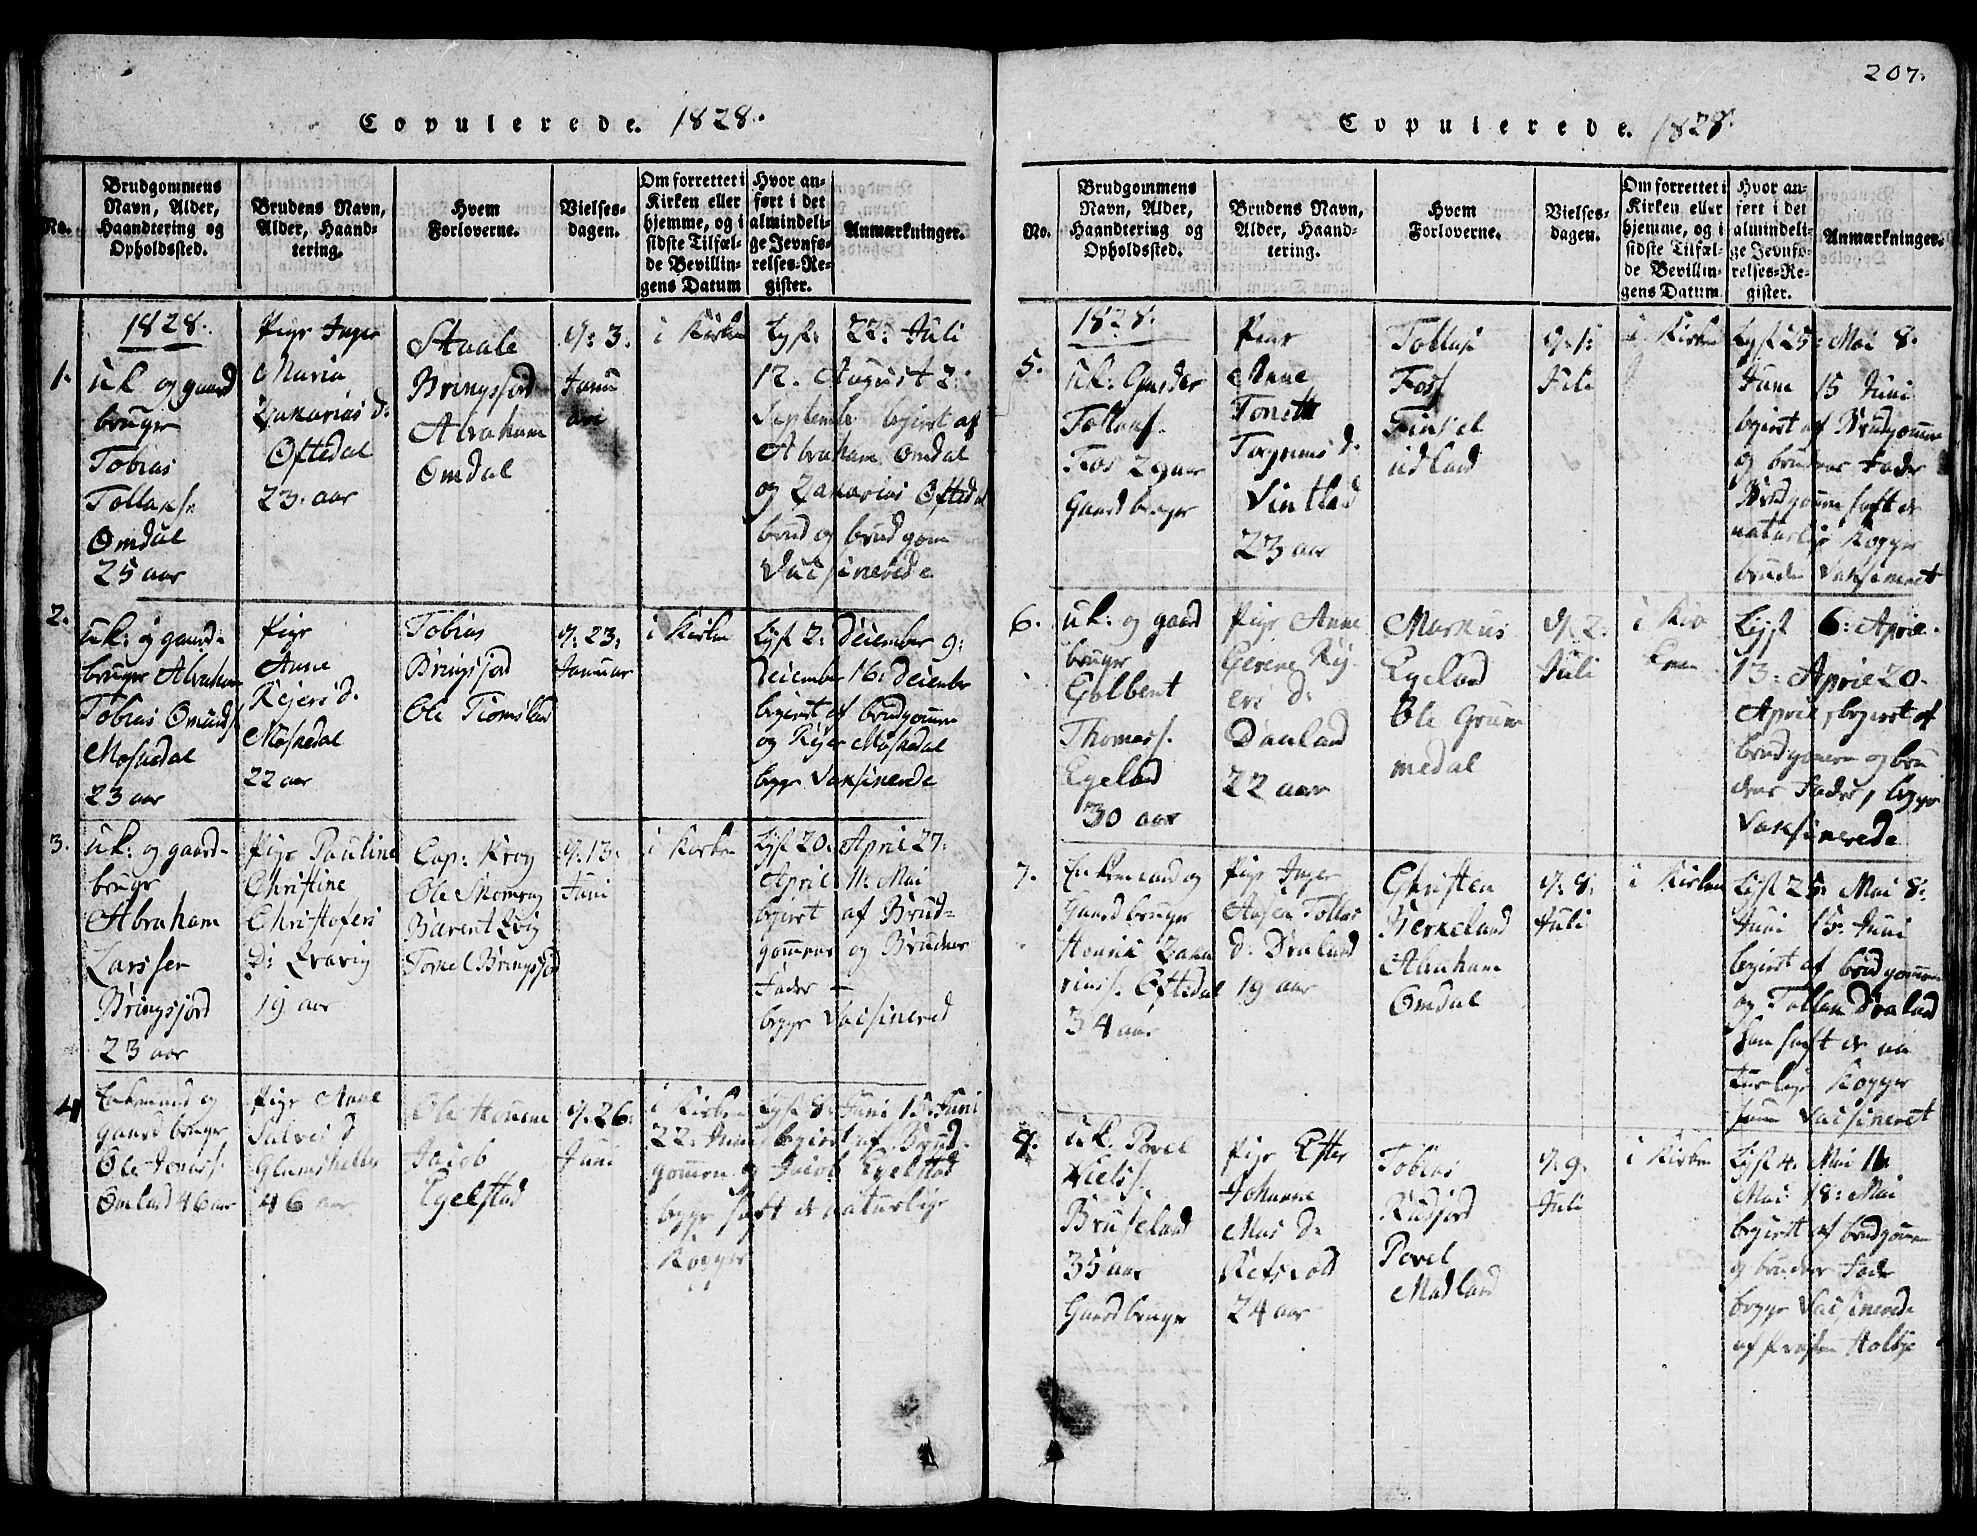 Copulerede. 1828.
No.
Brudgommens
Navn, Alder,
Haandtering og
Opholdssted.
Brudens Navn,
Alder, Haand-
tering.
Hvem
Forloverne.
Vielses-
dagen.
Om forrettet i
Kirken eller
hjemme, og i
sidste Tilfæl-
de Bevillin-
gens Datum
Hvor an-
ført i det
almindeli-
ge Jevnfø-
relses-Re-
gister.
Anmærkninger.
1828.
1.
uk og gaard
bruger
Tobias
Tollaks.
Omdal
25 aar
Pige Inger
Maria
Zakarias d:
Oftedal
23. aar
Staale
Bringsjord
Abraham
Omdal
d: 3.
Janu
ari
i Kirken
Lyst: 22: Juli
12. August 2:
Septembr begiert af
Abraham Omdal
og Zakarias Oftedal
brud og brudgom
Vaksinerede
2.
uk: og gaard-
bruger Abraham
Tobias Omunds.
Moskedal
23 aar
Pige
Anne
Reiers d.
Moskedal
22 aar
Tobias
Bringsjord
Ole Tiomsland
d: 23:
Januar
i Kirken
Lyst 2: Decembr 9:
Decembr 16: Decembr
begiert af brudgommen
og Reier Moskedal
begge Vaksinerede
3.
uk: og gaard-
bruger
Abraham
Larssen
Bringsjord
23 aar
Pige Pauline
Christine
Christofers
D: Qvavig
19 aar
Cap: Krog
Ole Skomrag
Barent Qvig
Tomel Bringsjord
d: 13:
Juni
i Kirken
Lyst 20. April 27:
April 11: Mai
begiert af Brud-
gommen og Brudens
Fader —
begge Vaksinered
4
Enkemand og
gaard bruger
Ole Jonass.
Omland 46 aar
Pige Anne
Salves d
Glamshelle
46 aar
Ole Houen
Jacob
Egelstad
d: 26:
Juni
i Kirken Lyst 8: Juni 15. Juni
22: Juni begiert af Brud-
gommen og Jacob Egelstad
begge haft de naturlige
Kogger
207.
Copulerede. 1828.
No.
Brudgommens
Navn, Alder,
Haandtering og
Opholdssted.
Brudens Navn,
Alder, Haand-
tering.
Hvem
Forloverne.
Vielses-
dagen.
Om forrettet i
Kirken eller
hjemme, og i
sidste Tilfæl-
de Bevillin-
gens Datum
Hvor an-
ført i det
almindeli-
ge Jevnfø-
relses-Re-
gister.
Anmærkninger.
1828.
5.
uk: Gunder
Tollaks.
Fos 29 aar
Gaard bruger
Pige
Anne
Tonette
Torjuus d.
Vintland
23 aar
Tollak
Foss
udland
d: 1:
Juli
i Kirken
Lyst 25: Mai 8.
Juni 15 Juni
begiert af Brudgommen
og brudens Fader
Brudgommen haft de
naturlige Kogger
bruden Vaksineret
6.
uk: og gaard
bruger
Gulbent
Thomass.
Egeland
30 aar
Pige Anne
Serene Rej-
ers d:
Dauland
22 aar
Markus
Egeland
Ole Grum
medal
d: 2:
Juli
i Kir
ken
Lyst 6: April.
13: April 20.
April, begiert af
brudgommen og bru
dens Fader, begge
Vaksinerede
7.
Enkemand og
Gaard bruger
Henrik Zaka
rias. Oftedal
34 aar
Pige Inger
Aasen Tollas
d. Draland
19 aar
Christen
Birkeland
Abraham
Omdal
d: 8:
Juli
i Kirken
Lyst 25: Mai 8:
Juni 15. Juni
begiert af brudgommen
og Tollan Draland
han haft de na
turlige Kogger
hun Vaksineret
8.
uk. Povel
Niels.
Bruseland
35 aar
Gaard bruger
Pige Ester
Johanne
Mas d:
Refsvold
24 aar
Tobias
Rudjord
Povel
Madland
d: 9.
Juli
i Kirken
Lyst 4. Mai 11.
Mai 18: Mai
begiert af brudgommen
og brudens Fader
begge Vaksinerede
af Præsten Holbye